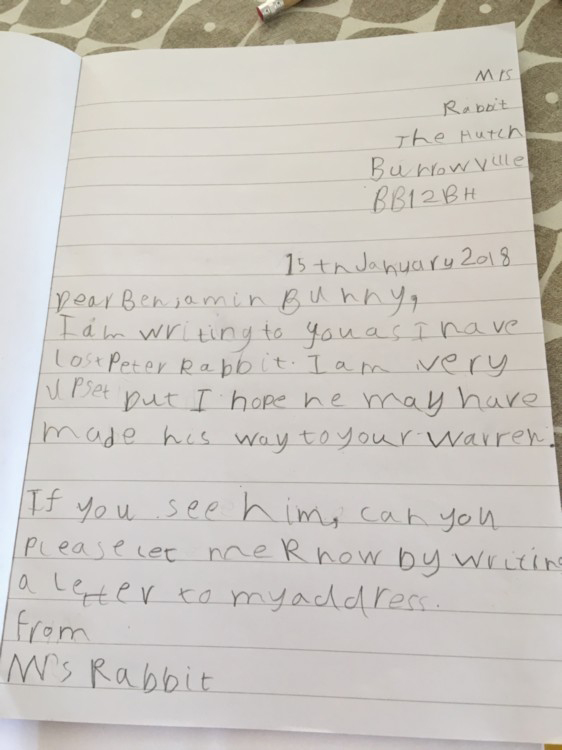 Mrs
Rabbit
The Hutch
Burrowville
BB12BH
15th January 2018
Dear Benjamin Bunny,
I am writing to you as I have
lost Peter Rabbit. I am very
upset but I hope he may have
made his way to your warren.
If you see him, can you
please let me know by writing
a letter to my address.
from
Mrs Rabbit